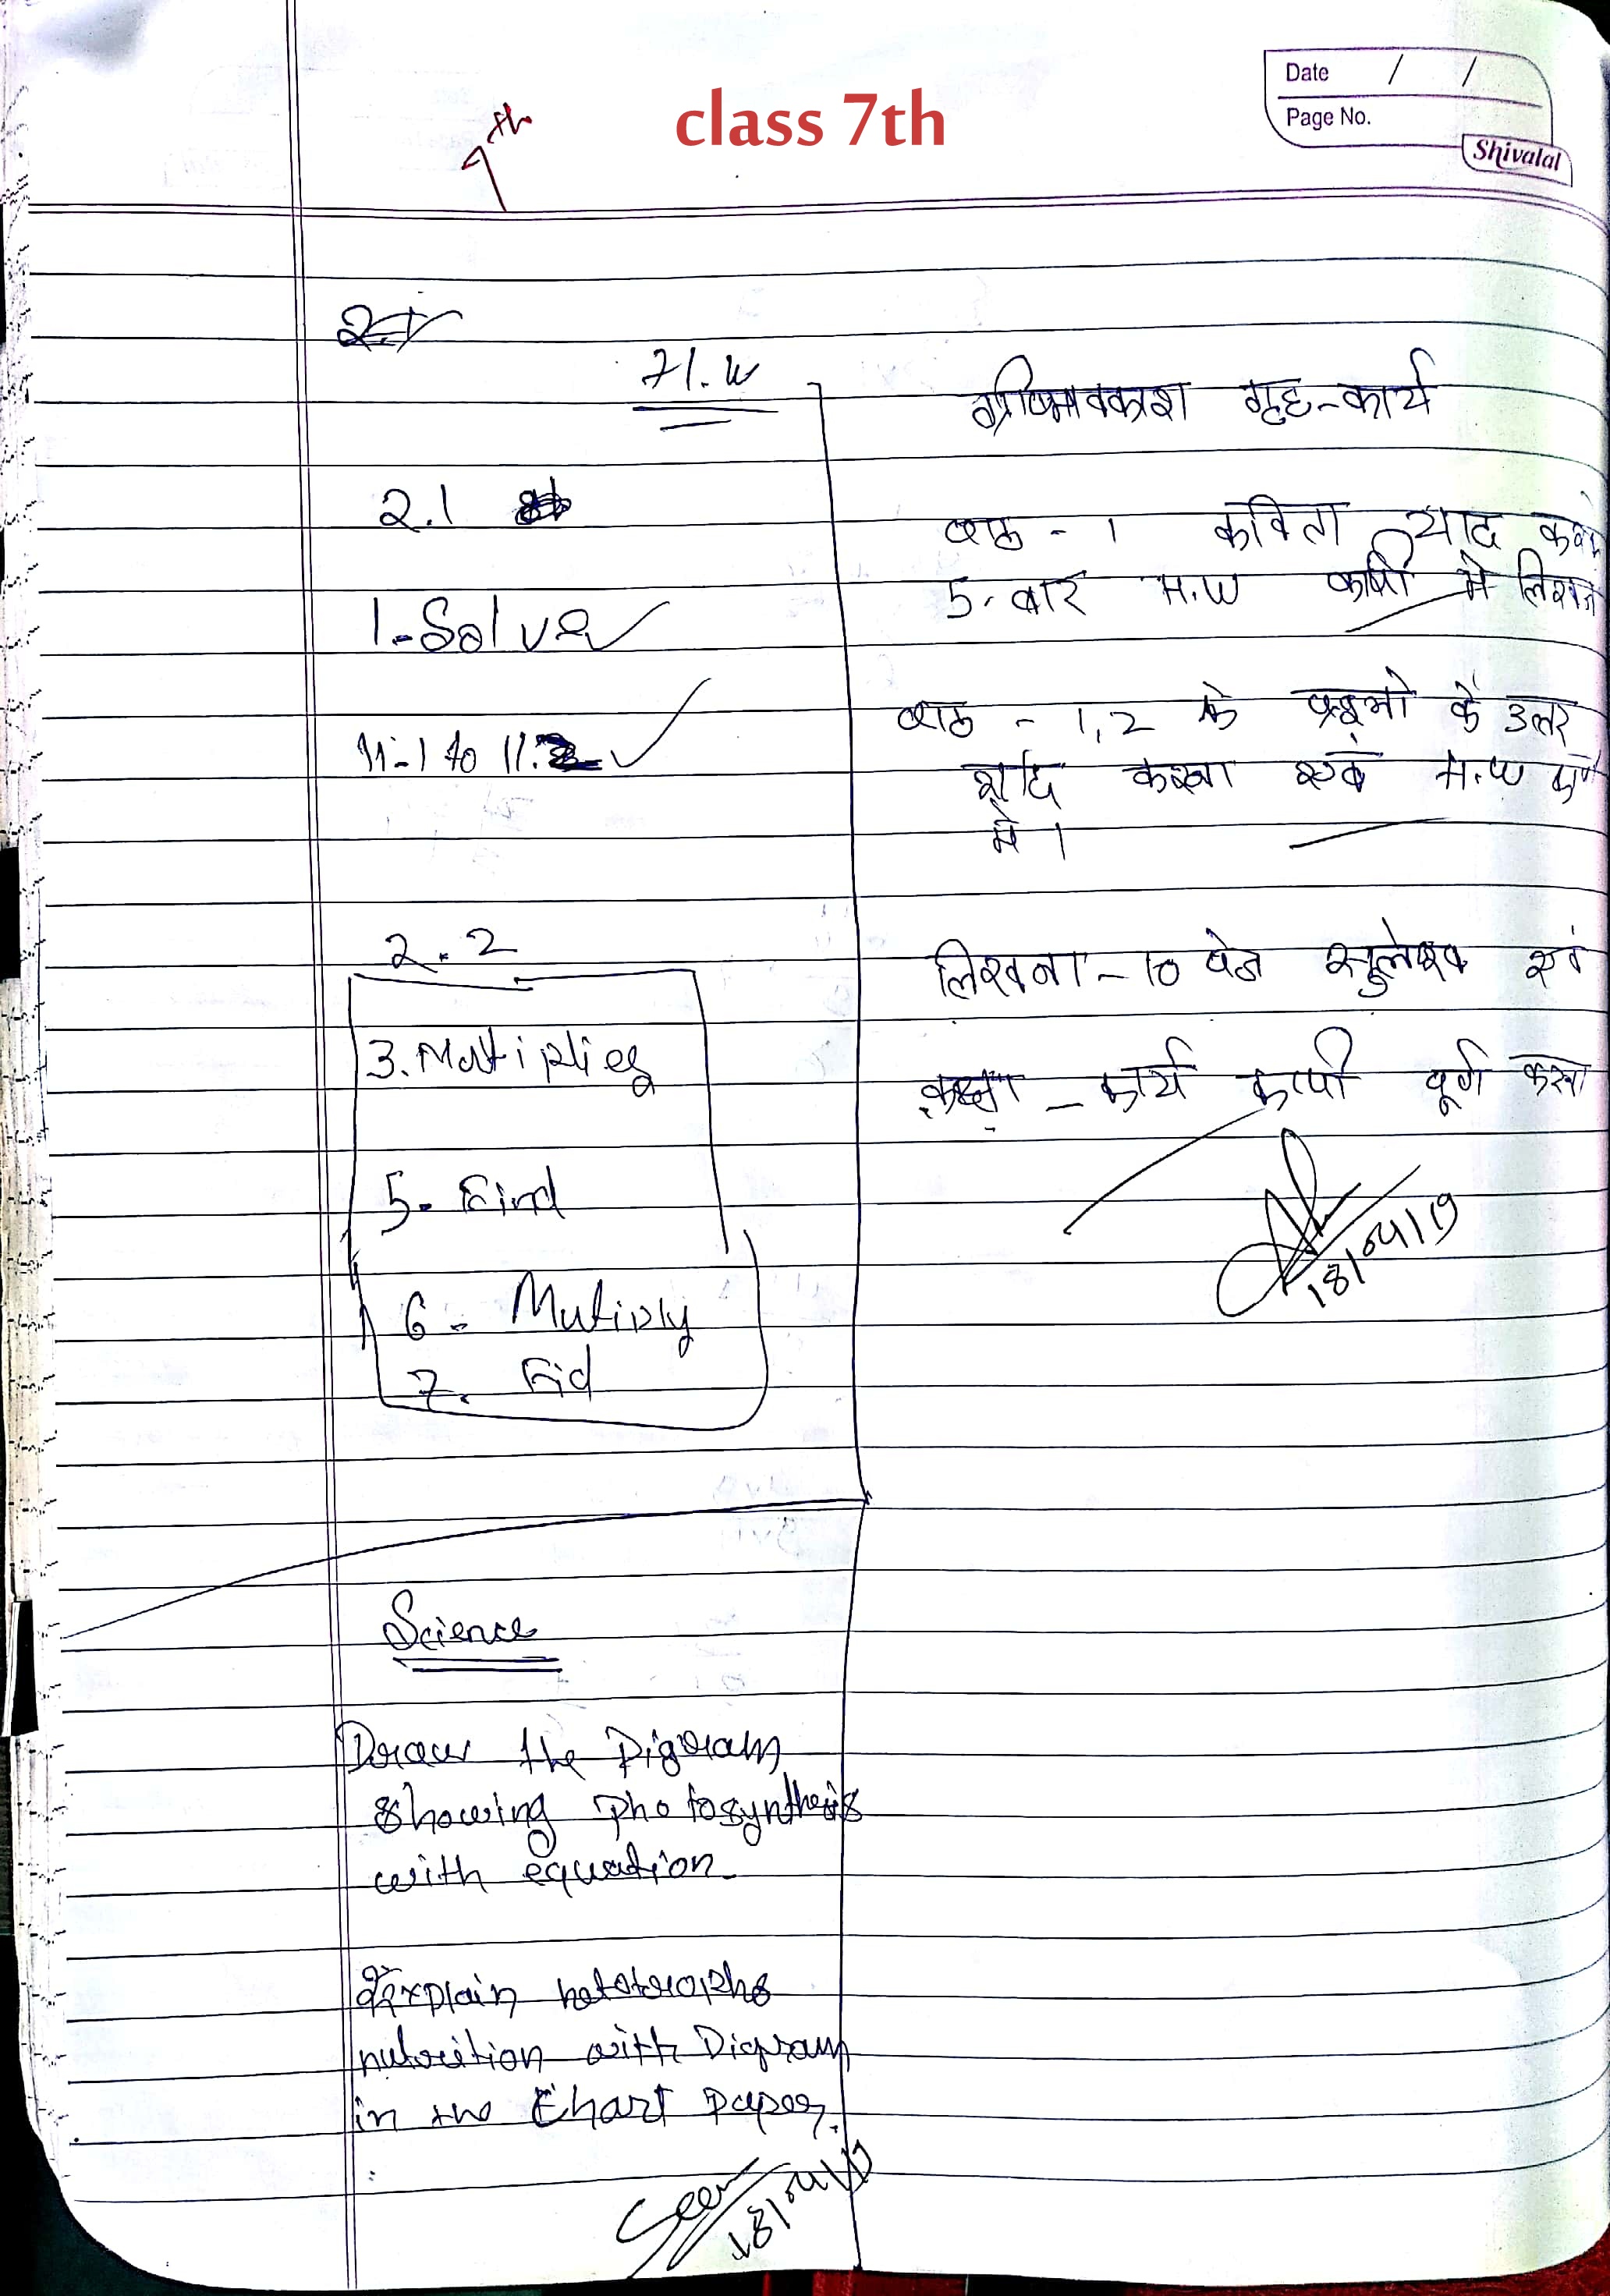 class 7th
7th
Date / /
Page No.
Shivalal
H.W
2.1
1-Solve
11-1 to 11.2
2.2
3. Multiplies
5- Find
6- Mutiply
7. Fid
ग्रीष्मावकाश गृह-कार्य
पाठ - 1 कविता याद करना
5-बार H.W कापी मे लिखना
पाठ - 1,2 के प्रश्नो के उत्तर
याद करना एवं H.W
मे ।
लिखना - 10 पेज सुलेख एवं
कक्षा - कार्य कापी पूर्ण करना
18/04/19
Science
Draw the Digram
showing photosynthesis
with equation.
Explain
nutrition with Digram
in the Chart Paper.
Seen